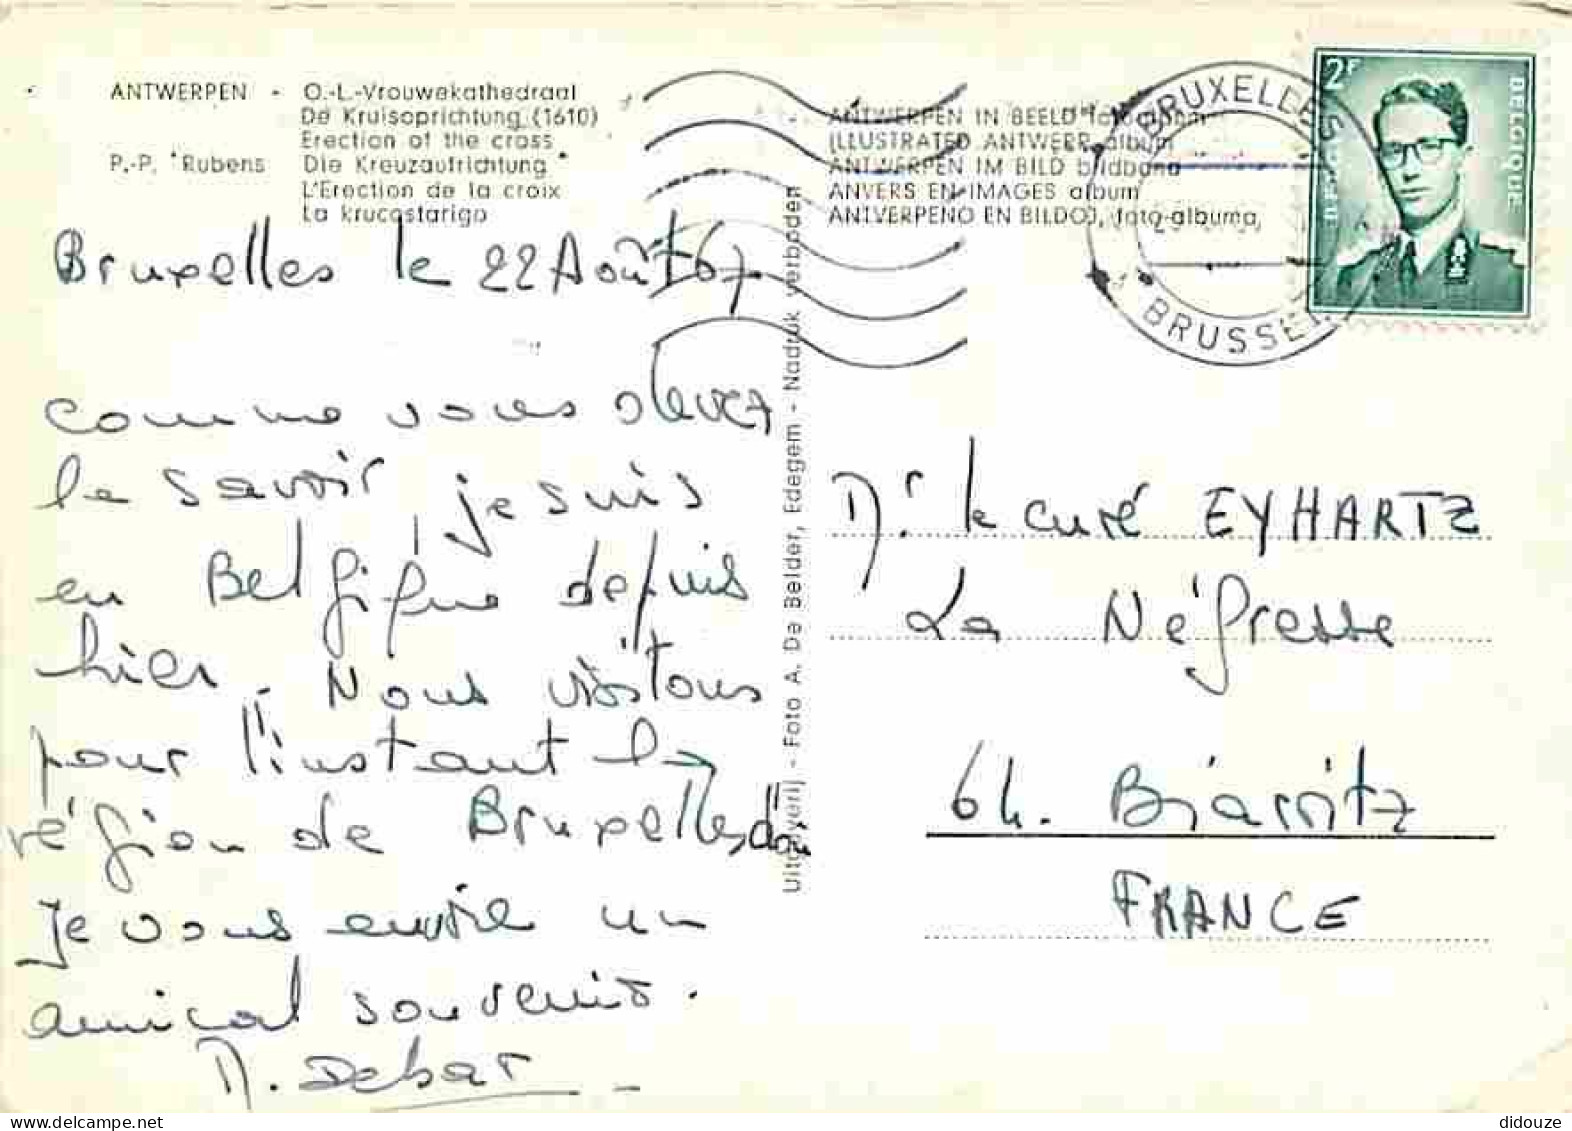 ANTWERPEN - O.-L.-Vrouwekathedraal
De Kruisoprichtung (1610)
Erection of the cross
P.-P. Rubens Die Kreuzaufrichtung
L'Erection de la croix
La krucostarigo
ANTWERPEN IN BEELD fotoalbum
ILLUSTRATED ANTWERP album
ANTWERPEN IM BILD bildband
ANVERS EN IMAGES album
ANTVERPENO EN BILDOJ, foto-albumo,
BRUXELLES
BRUSSEL
2F
BELGIQUE
BELGIE
Bruxelles le 22 Août 67
comme vous devez
le savoir, je suis
en Belgique depuis
hier. Nous visitons
pour l'instant la
région de Bruxelles, d'où
je vous envoie un
amical souvenir.
M. Debar
Uitgeverij - Foto A. De Belder, Edegem - Nadruk verboden
Mr le curé EYHARTZ
La Négresse
64. Biarritz
FRANCE
didouze